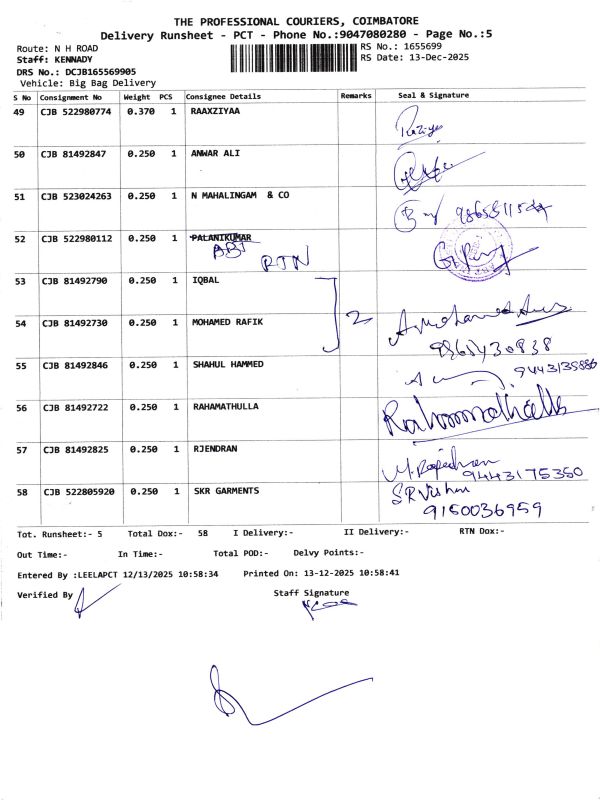 THE PROFESSIONAL COURIERS, COIMBATORE
Delivery Runsheet - PCT - Phone No.:9047080280 - Page No.:5
Route: N H ROAD
RS No.: 1655699
Staff: KENNADY
RS Date: 13-Dec-2025
DRS No.: DCJB165569905
Vehicle: Big Bag Delivery
S No Consignment No Weight PCS Consignee Details Remarks Seal & Signature
49 CJB 522980774 0.370 1 RAAXZIYAA
Raziya
50 CJB 81492847 0.250 1 ANWAR ALI
51 CJB 523024263 0.250 1 N MAHALINGAM & CO
52 CJB 522980112 0.250 1 PALANIKUMAR
RTN
53 CJB 81492790 0.250 1 IQBAL
2
54 CJB 81492730 0.250 1 MOHAMED RAFIK
9865430838
55 CJB 81492846 0.250 1 SHAHUL HAMMED
56 CJB 81492722 0.250 1 RAHAMATHULLA
Rahamathulla
57 CJB 81492825 0.250 1 RJENDRAN
M.Rajendran
9443175350
58 CJB 522805920 0.250 1 SKR GARMENTS
S R Vishnu
9150036959
Tot. Runsheet:- 5 Total Dox:- 58 I Delivery:- II Delivery:- RTN Dox:-
Out Time:- In Time:- Total POD:- Delvy Points:-
Entered By :LEELAPCT 12/13/2025 10:58:34 Printed On: 13-12-2025 10:58:41
Verified By
Staff Signature